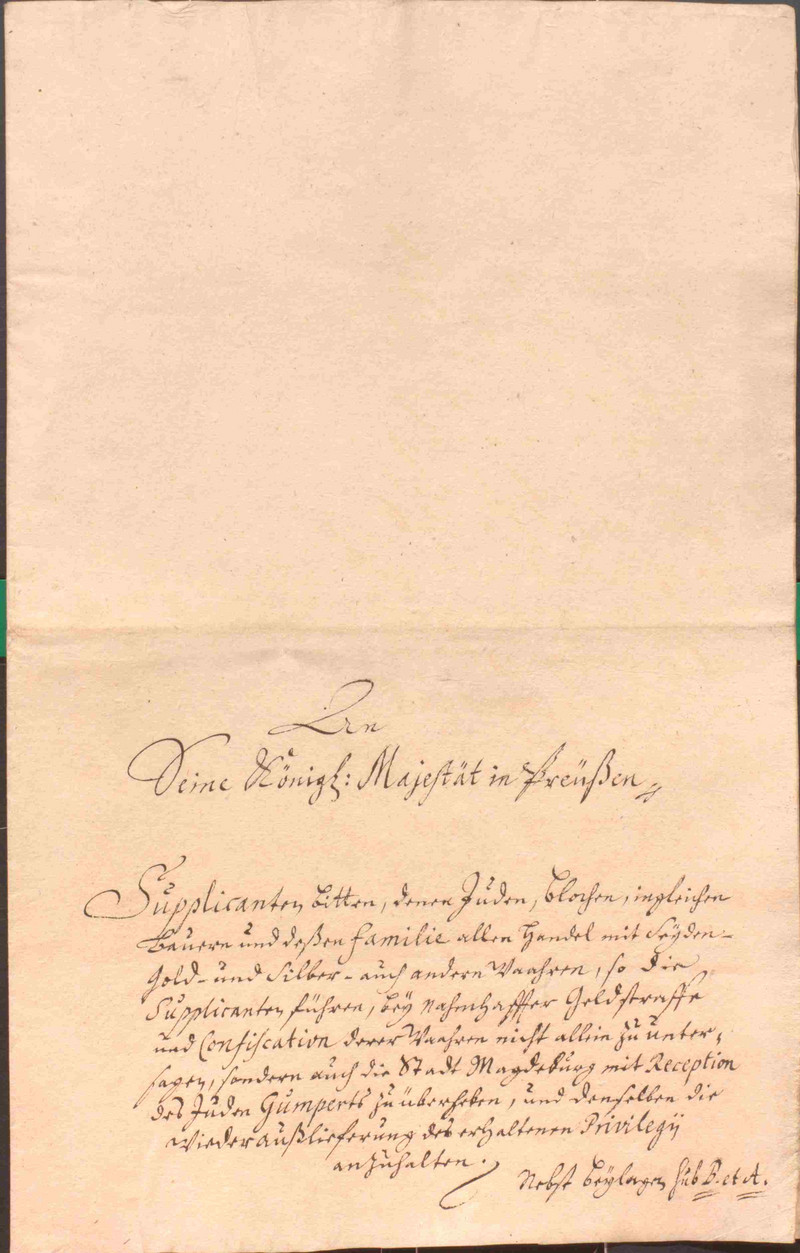 An
Seine Königl: Majestät in Preüßen
Supplicanten bitten, denen Juden, Blochen, ingleichen
Bauern und deßen Familie allen Handel mit Seyden-
Gold- und Silber- auch andern Waahren, so die
Supplicanten führen, bey nahmhaffter Geldstraffe
und Confiscation derer Waahren nicht allein zu unter-
sagen, sondern auch die Stadt Magdeburg mit Reception
des Juden Gumperts zu überheben, und denselben die
Wiederaußlieferung des erhaltenen Privilegÿ
anzuhalten.
Nebst Beÿlagen sub B. et A.